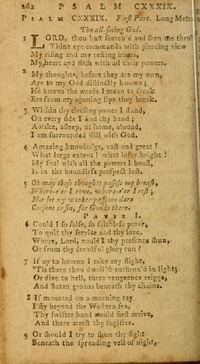 262 PSALM CXXXIX.
PSALM CXXXIX. First Part. Long Metre
The all-seeing God.
1 LORD, thou hast search'd and seen me thro'
Thine eye commands with piercing view
My rising and my resting hours,
My heart and flesh with all their powers.
2 My thoughts, before they are my own,
Are to my God distinctly known;
He knows the words I mean to speak
Ere from my opening lips they break.
3 Within thy circling power I stand,
On every side I find thy hand;
Awake, asleep, at home, abroad,
I am surrounded still with God.
4 Amazing knowledge, vast and great!
What large extent! what lofty height!
My soul with all the powers I boast,
Is in the boundless prospect lost.
5 Oh may these thoughts possess my breast,
Where-e'er I rove, where-e'er I rest;
Nor let my weaker passions dare
Consent to sin, for God is there.
6 Could I so false, so faithless prove,
To quit thy service and thy love,
Where, Lord, could I thy presence shun,
Or from thy dreadful glory run?
7 If up to heaven I take my flight,
'Tis there thou dwell'st enthron'd in light;
Or dive to hell, there vengeance reigns,
And Satan groans beneath thy chains.
8 If mounted on a morning ray
I fly beyond the Western sea,
Thy swifter hand would first arrive,
And there arrest thy fugitive.
9 Or should I try to shun thy sight
Beneath the spreading veil of night,